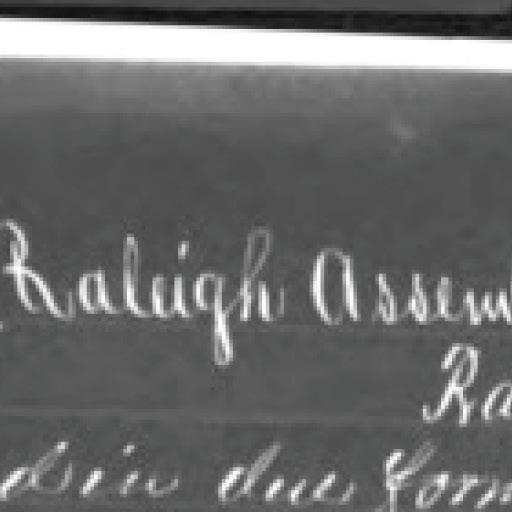 Raleigh Assem
Ra
ds in due form